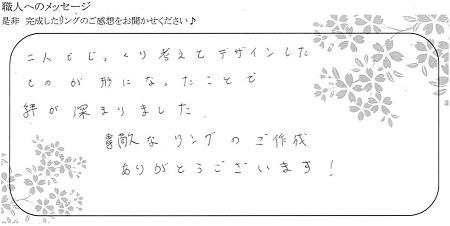 職人へのメッセージ
是非 完成したリングのご感想をお聞かせください♪
二人でじっくり考えてデザインした
ものが形になったことで
絆が深まりました。
素敵なリングのご作成
ありがとうございます!